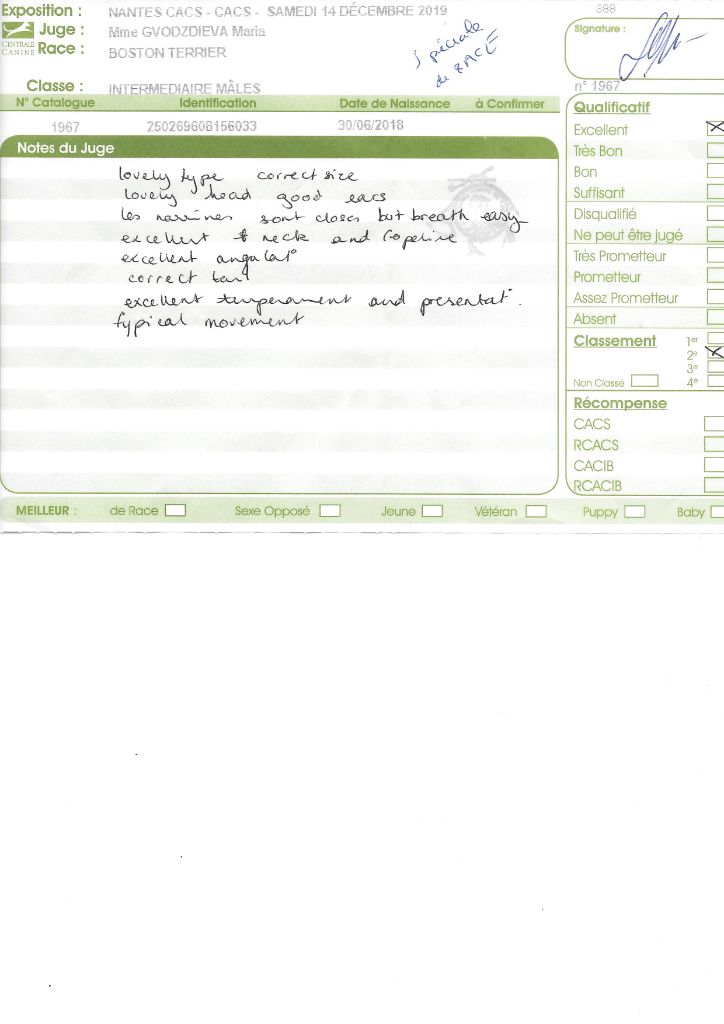 Exposition : NANTES CACS - CACS - SAMEDI 14 DÉCEMBRE 2019
888
Juge : Mme GVODZDIEVA Maria
CENTRALE CANINE
Race : BOSTON TERRIER
Spéciale
de RACE
Signature :
Classe : INTERMEDIAIRE MÂLES
n° 1967
N° Catalogue Identification Date de Naissance à Confirmer
1967 250269608156033 30/06/2018
Notes du Juge
lovely type correct size
lovely head good ears
les narrines sont closes but breath easy
excellent neck and topeline
excellent angulat°
correct tail
excellent temperament and presentat°.
typical movement
Qualificatif
Excellent
Très Bon
Bon
Suffisant
Disqualifié
Ne peut être jugé
Très Prometteur
Prometteur
Assez Prometteur
Absent
Classement 1er
2e
3e
Non Classé 4e
Récompense
CACS
RCACS
CACIB
RCACIB
MEILLEUR : de Race Sexe Opposé Jeune Vétéran Puppy Baby